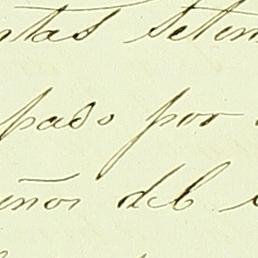 ntas seten
pado por
eños del